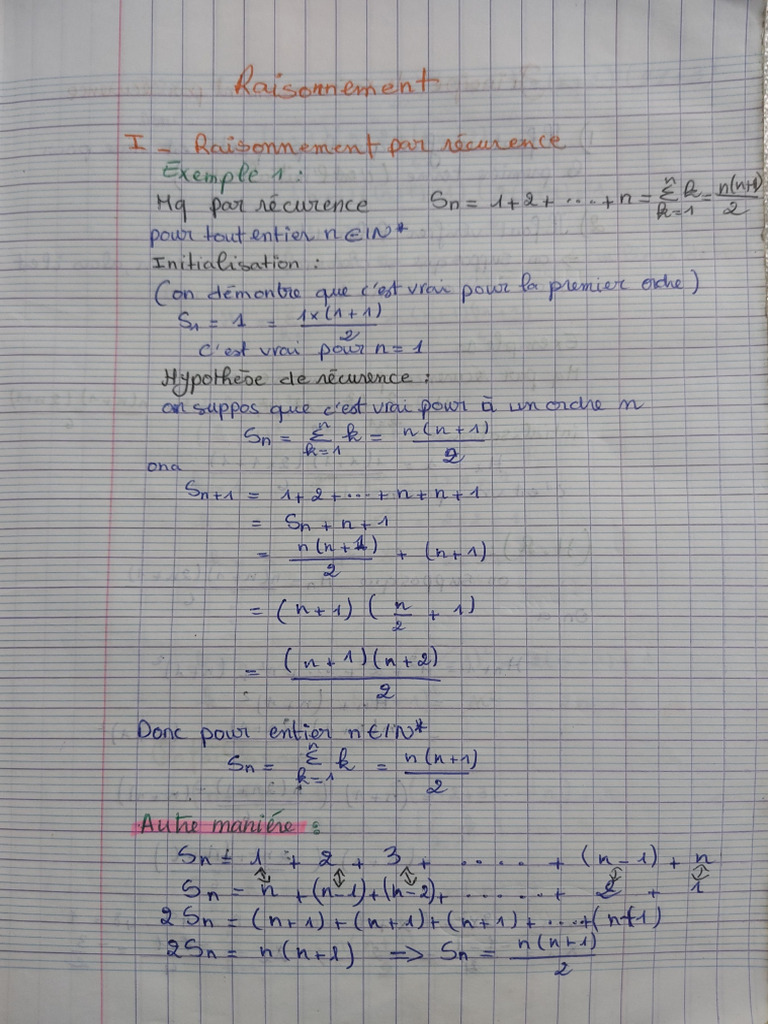 Raisonnement
I - Raisonnement par récurence
Exemple 1 :
Mq par récurence Sn = 1+2+ ..... + n = Σ_{k=1}^{n} k = n(n+1)/2
pour tout entier n ∈ IN*
Initialisation :
(on démontre que c'est vrai pour la premier ordre)
S1 = 1 = 1×(n+1)/2
C'est vrai pour n = 1
Hypothèse de récurence :
on suppos que c'est vrai pour à un ordre n
Sn = Σ_{k=1}^{n} k = n(n+1)/2
ona
Sn+1 = 1+2+...+n+n+1
= Sn + n + 1
= n(n+1)/2 + (n+1)
= (n+1) (n/2 + 1)
= (n+1)(n+2)/2
Donc pour entier n ∈ IN*
Sn = Σ_{k=1}^{n} k = n(n+1)/2
Autre manière :
Sn = 1 + 2 + 3 + ..... + (n-1) + n
Sn = n + (n-1) + (n-2) + ...... + 2 + 1
2Sn = (n+1) + (n+1) + (n+1) + ...+(n+1)
2Sn = n(n+1) => Sn = n(n+1)/2